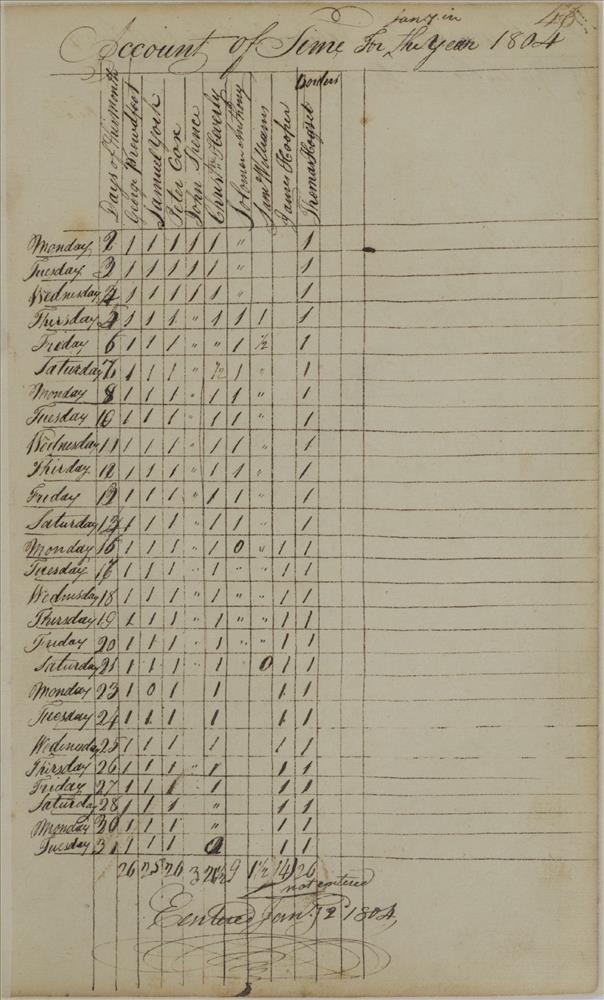 Jany in
Account of Time For the Year 1804
Borders
Days of the Month
George Prowdfoot
Samuel York
Peter Cox
John Spence
Solomon Anthony
Sam Williams
James Hooper
Monday 2 1 1 1 1 1 " 1
Tuesday 3 1 1 1 1 1 " 1
Wednesday 4 1 1 1 1 1 " 1
Thursday 1 1 1 " 1 1 1 1
Friday 6 1 1 1 " " 1 1/2 1
Saturday 7 1 1 1 " 1/2 1 " 1
Monday 8 1 1 1 " 1 1 " 1
Tuesday 10 1 1 1 " 1 1 " 1
Wednesday 11 1 1 1 " 1 1 " 1
Thirsday 12 1 1 1 " 1 1 " 1
Friday 13 1 1 1 " 1 1 " 1
Saturday 14 1 1 1 " 1 1 " 1
Monday 16 1 1 1 " 1 0 " 1 1
Tuesday 17 1 1 1 " 1 " " 1 1
Wednesday 18 1 1 1 " 1 " " 1 1
Thirsday 19 1 1 1 " 1 " " 1 1
Friday 20 1 1 1 " 1 " " 1 1
Saturday 21 1 1 1 " 1 " 0 1 1
Monday 23 1 0 1 1 1 1
Tuesday 24 1 1 1 1 1 1
Wednesday 25 1 1 1 1 1 1
Thirsday 26 1 1 1 " 1 1 1
Friday 27 1 1 1 1 1 1
Saturday 28 1 1 1 " 1 1
Monday 30 1 1 1 " 1 1
Tuesday 31 1 1 1 0 1 1
26 25 26 3 21 1/2 9 1 1/2 14 26
not entered
Jany 1804